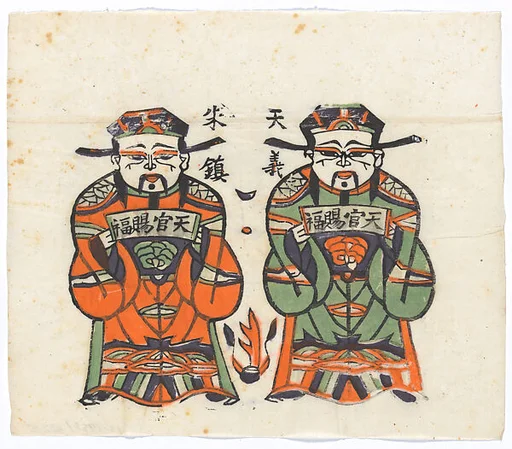 天義
朱鎮
天官賜福
天官賜福